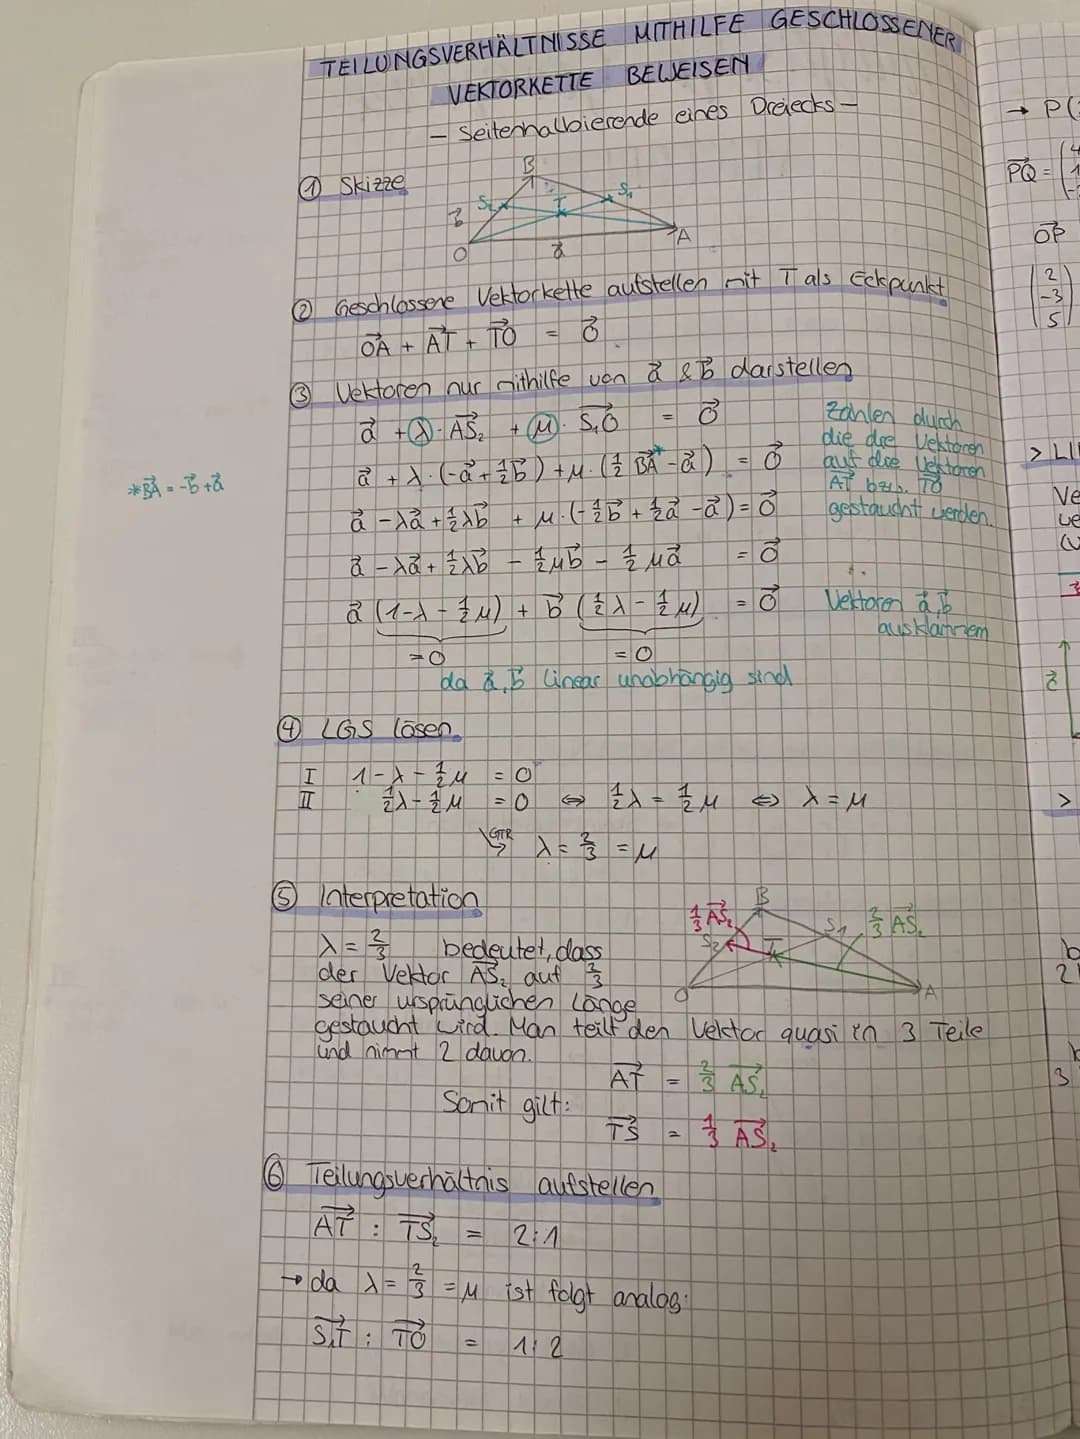 TEILUNGSVERHÄLTNISSE MITHILFE GESCHLOSSENER
VEKTORKETTE BEWEISEN
– Seitenhalbierende eines Dreiecks –
① Skizze
B
S₂ T S₁
b⃗
O a⃗ A
② Geschlossene Vektorkette aufstellen mit T als Eckpunkt
O⃗A + A⃗T + T⃗O = O⃗
③ Vektoren nur mithilfe von a⃗ & b⃗ darstellen
a⃗ + λ · A⃗S₂ + μ · S₁⃗O = O⃗
a⃗ + λ · (-a⃗ + ½b⃗) + μ · (½ B⃗A* - a⃗) = O⃗
*B⃗A = -b⃗ + a⃗
a⃗ - λa⃗ + ½λb⃗ + μ · (-½b⃗ + ½a⃗ - a⃗) = O⃗
a⃗ - λa⃗ + ½λb⃗ - ½μb⃗ - ½μa⃗ = O⃗
a⃗ (1 - λ - ½μ) + b⃗ (½λ - ½μ) = O⃗
=0 =0
da a⃗, b⃗ linear unabhängig sind
Zahlen durch
die die Vektoren
auf die Vektoren
A⃗T bzw. T⃗O
gestaucht werden.
Vektoren a⃗, b⃗
ausklammern
④ LGS lösen
I 1 - λ - ½μ = 0
II ½λ - ½μ = 0 ⇔ ½λ = ½μ ⇔ λ = μ
GTR λ = ⅔ = μ
⑤ Interpretation
B
⅓ A⃗S₂ S₁ ⅔ A⃗S₂
S₂ T
O A
λ = ⅔ bedeutet, dass
der Vektor A⃗S₂ auf ⅔
seiner ursprünglichen Länge
gestaucht wird. Man teilt den Vektor quasi in 3 Teile
und nimmt 2 davon.
Somit gilt:
A⃗T = ⅔ A⃗S₂
T⃗S = ⅓ A⃗S₂
⑥ Teilungsverhältnis aufstellen
A⃗T : T⃗S₂ = 2:1
→ da λ = ⅔ = μ ist folgt analog:
S₁⃗T : T⃗O = 1:2
→ P(
P⃗Q =
O⃗P
2
-3
5
> LI
Ve
>
2
3